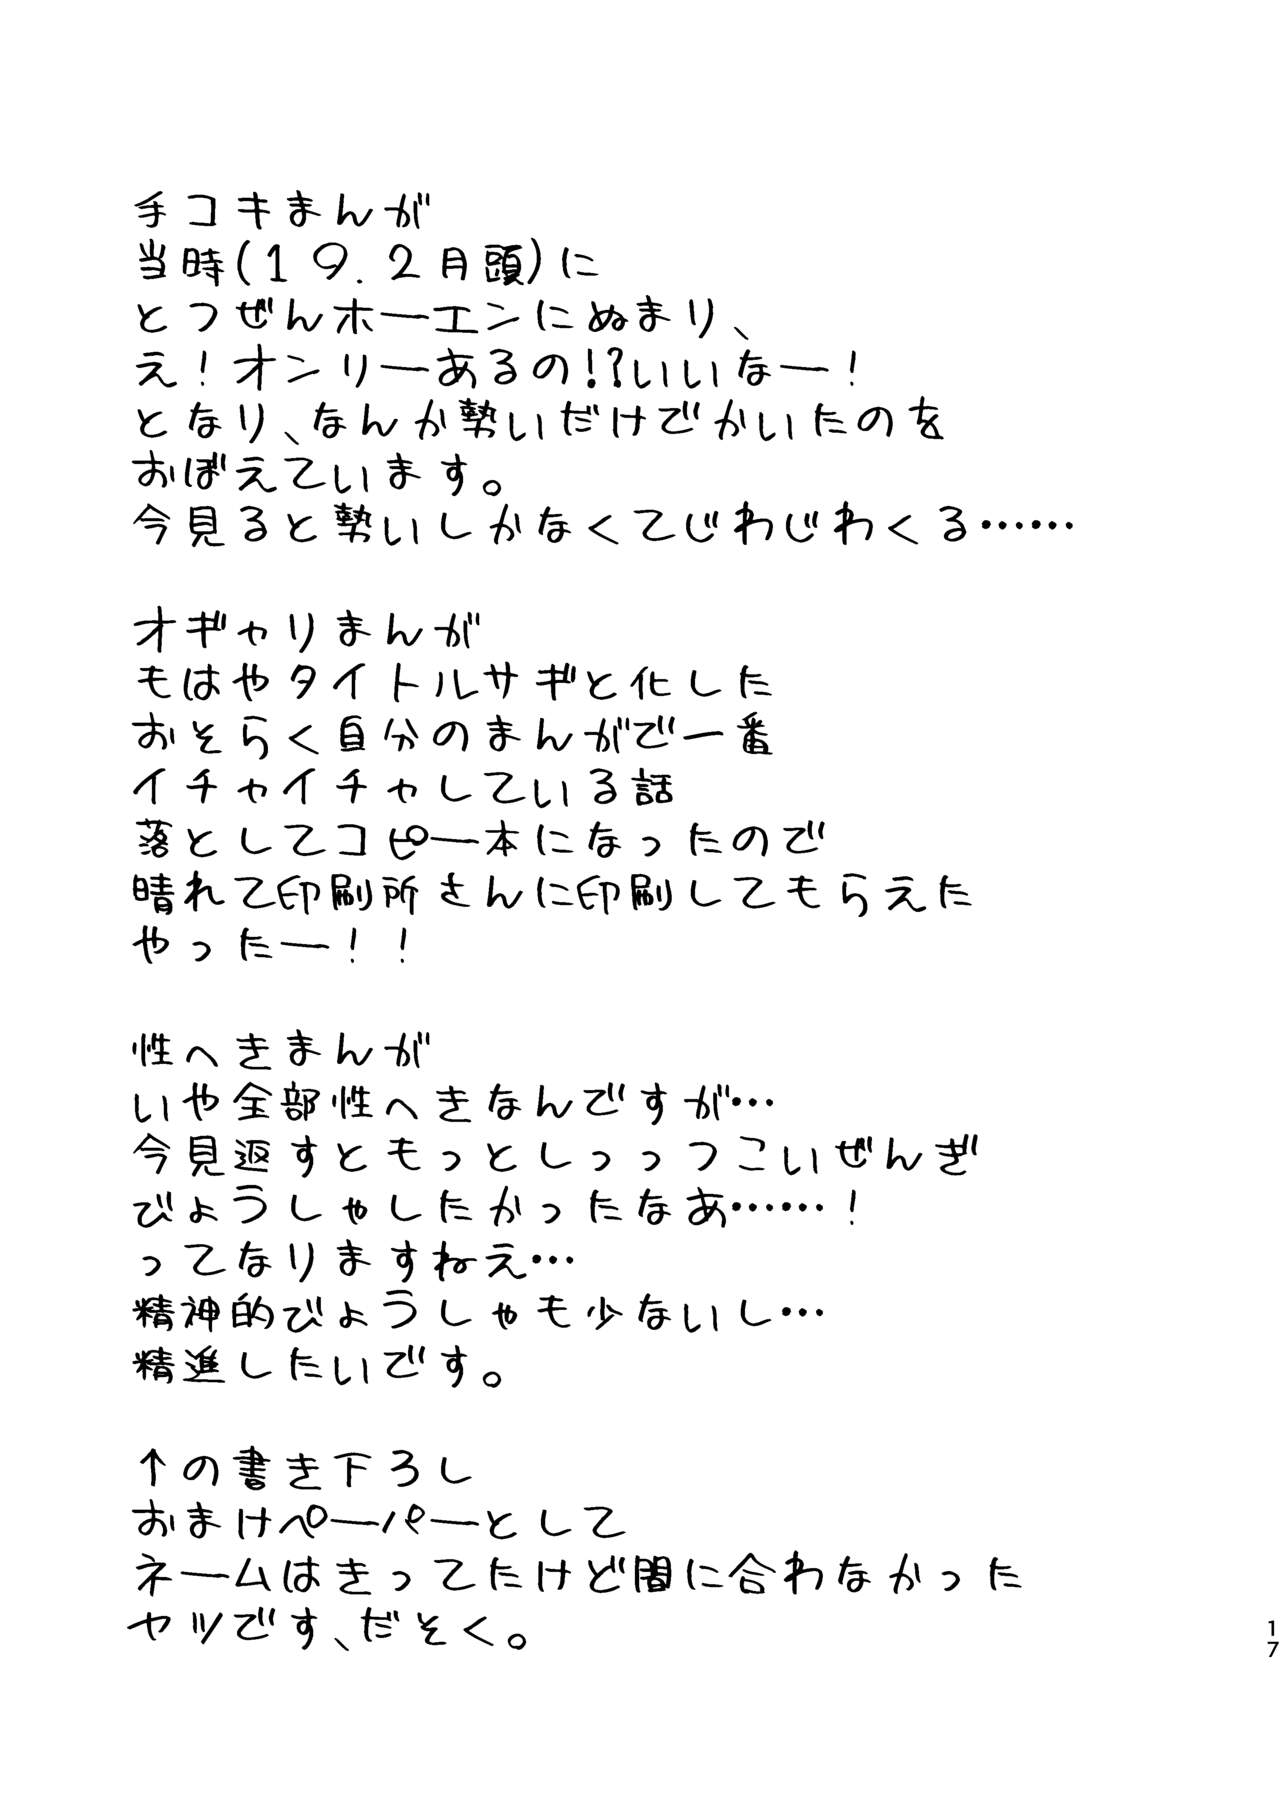 手コキまんが
当時(19.2月頭)に
とつぜんホーエンにぬまり、
え!オンリーあるの!?いいなー!
となり、なんか勢いだけでかいたのを
おぼえています。
今見ると勢いしかなくてじわじわくる……
オギャりまんが
もはやタイトルサギと化した
おそらく自分のまんがで一番
イチャイチャしている話
落としてコピー本になったので
晴れて印刷所さんに印刷してもらえた
やったー!!
性へきまんが
いや全部性へきなんですが…
今見返すともっとしっっつこいぜんぎ
びょうしゃしたかったなあ……!
ってなりますねえ…
精神的びょうしゃも少ないし…
精進したいです。
↑の書き下ろし
おまけペーパーとして
ネームはきってたけど間に合わなかった
ヤツです、だそく。
17